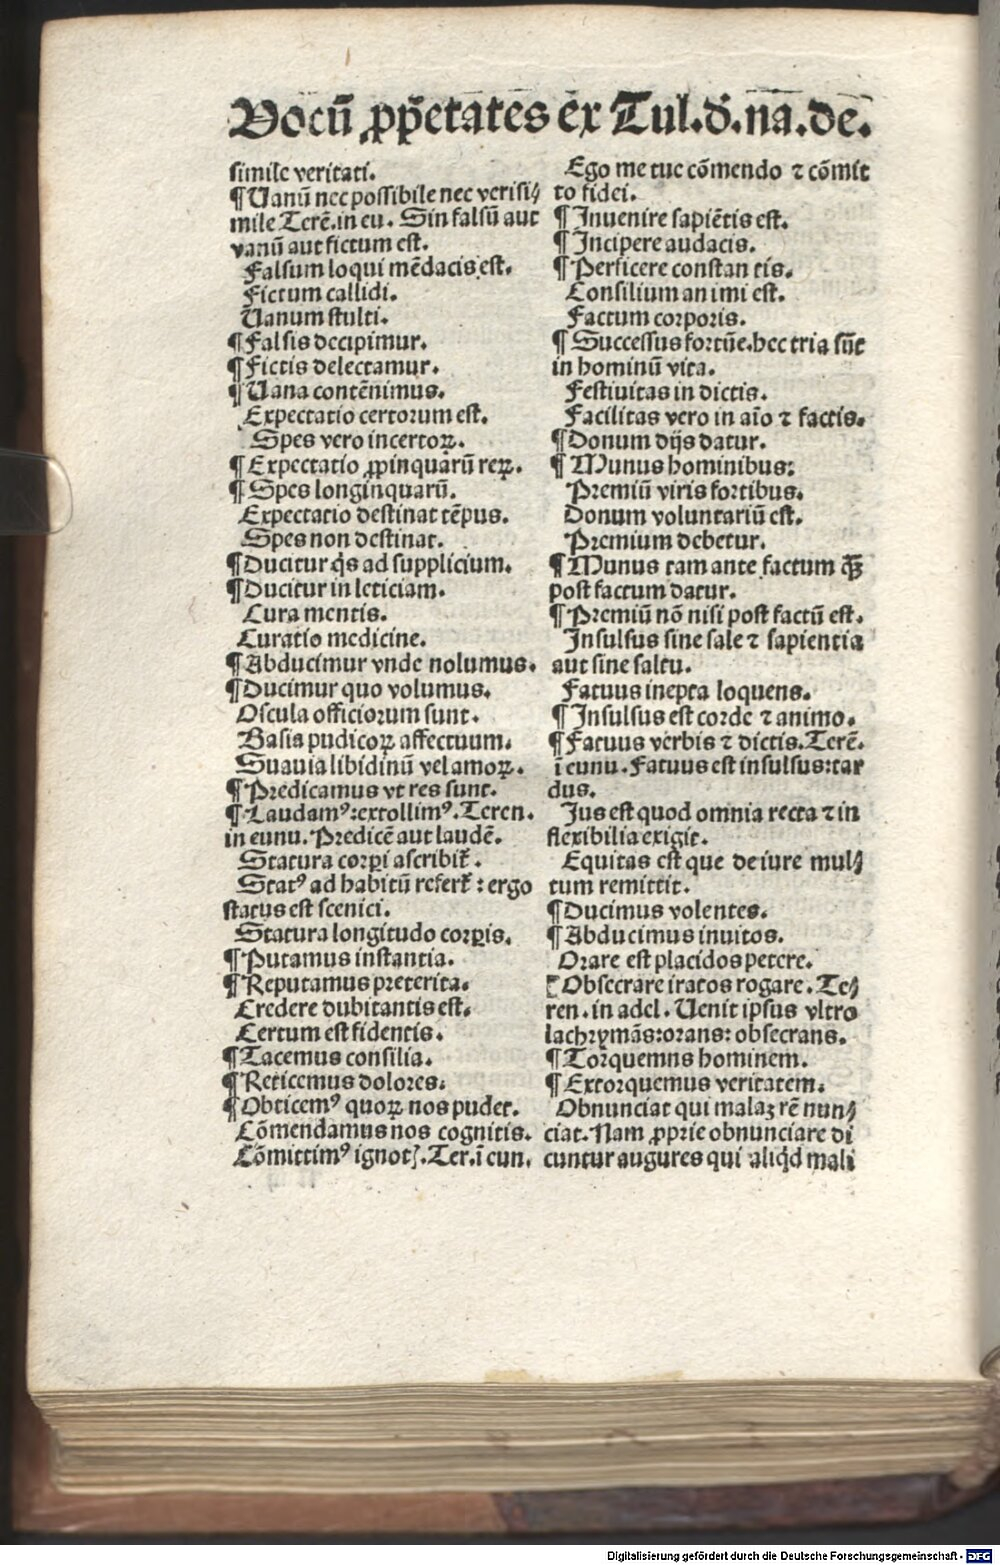 Vocū ꝓp̄etates ex Tul.d̄.na.de.
simile veritati.
¶ Vanū nec possibile nec verisi⸗
mile Terē.in eu. Sin falsū aut
vanū aut fictum est.
Falsum loqui mēdacis est.
Fictum callidi.
Vanum stulti.
¶ Falsis decipimur.
¶ Fictis delectamur.
¶ Vana contēnimus.
Expectatio certorum est.
Spes vero incertoꝝ.
¶ Expectatio ꝓpinquarū reꝝ.
¶ Spes longinquarū.
Expectatio destinat tēpus.
Spes non destinat.
¶ Ducitur q̇s ad supplicium.
¶ Ducitur in leticiam.
Cura mentis.
Curatio medicine.
¶ Abducimur vnde nolumus.
¶ Ducimur quo volumus.
Oscula officiorum sunt.
Basia pudicoꝝ affectuum.
Suauia libidinū vel amoꝝ.
¶ Predicamus vt res sunt.
¶ Laudamꝰ:extollimꝰ.Teren.
in eunu. Predicē aut laudē.
Statura corpi ascribit̄.
Statꝰ ad habitū refert̄: ergo
status est scenici.
Statura longitudo corꝑis.
¶ Putamus instantia.
¶ Reputamus preterita.
Credere dubitantis est.
Certum est fidentis.
¶ Tacemus consilia.
¶ Reticemus dolores.
¶ Obticemꝰ quoꝝ nos pudet.
Cōmendamus nos cognitis.
Cōmittimꝰ ignotꝭ.Ter.ī eun.
Ego me tue cōmendo ⁊ cōmit
to fidei.
¶ Inuenire sapiētis est.
¶ Incipere audacis.
¶ Perficere constantis.
Consilium animi est.
Factum corporis.
¶ Successus fortūe.hec tria sūt
in hominū vita.
Festiuitas in dictis.
Facilitas vero in aīo ⁊ factis.
¶ Donum dijs datur.
¶ Munus hominibus:
Premiū viris fortibus.
Donum voluntariū est.
Premium debetur.
¶ Munus tam ante factum ꝙ̄
post factum datur.
¶ Premiū nō nisi post factū est.
Insulsus sine sale ⁊ sapientia
aut sine saltu.
Fatuus inepta loquens.
¶ Insulsus est corde ⁊ animo.
¶ Fatuus verbis ⁊ dictis.Terē.
ī eunu.Fatuus est insulsus:tar
dus.
Jus est quod omnia recta ⁊ in
flexibilia exigit.
Equitas est que de iure mul⸗
tum remittit.
¶ Ducimus volentes.
¶ Abducimus inuitos.
Orare est placidos petere.
¶ Obsecrare iratos rogare.Te⸗
ren.in adel.Venit ipsus vltro
lachrymās:orans:obsecrans.
¶ Torquemns hominem.
¶ Extorquemus veritatem.
Obnunciat qui malaꝫ rē nun⸗
ciat.Nam ꝓprie obnunciare di
cuntur augures qui aliq̇d mali
Digitalisierung gefördert durch die Deutsche Forschungsgemeinschaft - DFG